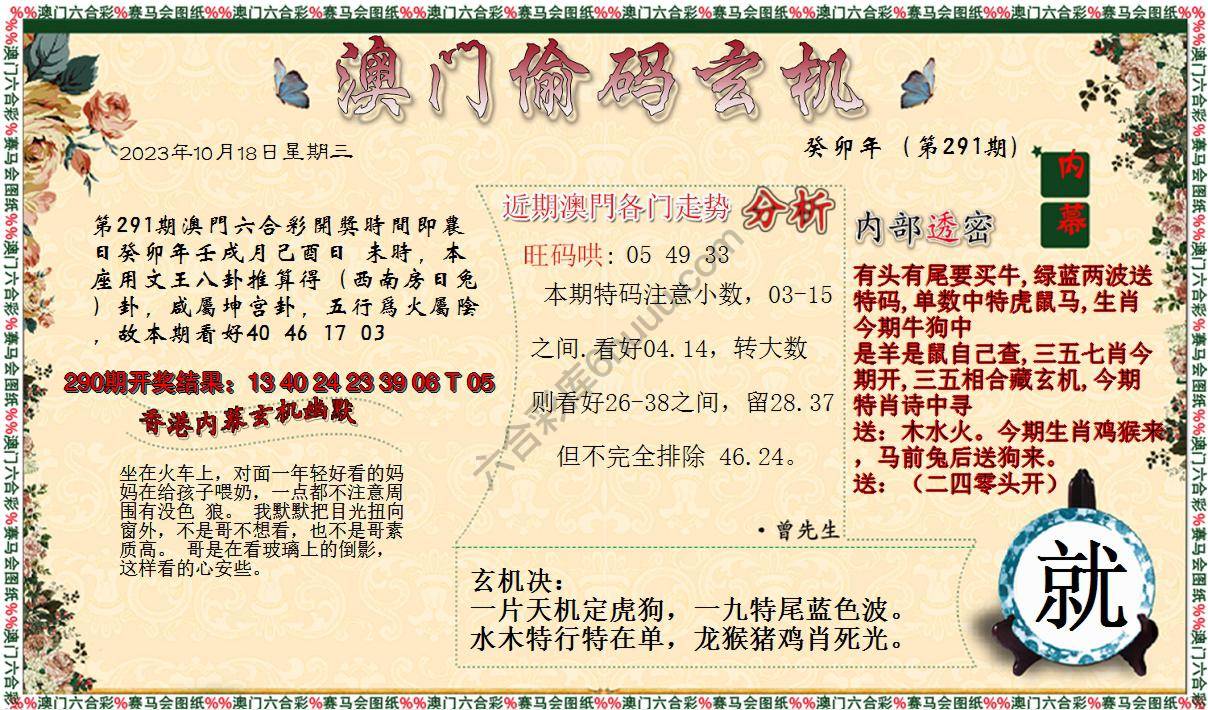 %%澳门六合彩%赛马会图纸%%澳门六合彩%赛马会图纸%%澳门六合彩%赛马会图纸%%澳门六合彩%赛马会图纸%%澳门六合彩%赛马会图纸%%澳门六合彩%赛马会图纸%%
澳门偷码玄机
2023年10月18日星期三
癸卯年（第291期）
内
幕
第291期澳門六合彩開獎時間即農
日癸卯年壬戌月己酉日 未時，本
座用文王八卦推算得（西南房日兔
）卦，咸屬坤宫卦，五行爲火屬陰
，故本期看好40 46 17 03
290期开奖结果：13 40 24 23 39 06 T 05
香港内幕玄机幽默
坐在火车上，对面一年轻好看的妈
妈在给孩子喂奶，一点都不注意周
围有没色 狼。 我默默把目光扭向
窗外，不是哥不想看，也不是哥素
质高。 哥是在看玻璃上的倒影，
这样看的心安些。
近期澳門各门走势 分析
旺码哄: 05 49 33
本期特码注意小数，03-15
之间.看好04.14，转大数
则看好26-38之间，留28.37
但不完全排除 46.24。
·曾先生
内部透密
有头有尾要买牛,绿蓝两波送
特码,单数中特虎鼠马,生肖
今期牛狗中
是羊是鼠自己查,三五七肖今
期开,三五相合藏玄机,今期
特肖诗中寻
送：木水火。今期生肖鸡猴来
，马前兔后送狗来。
送：（二四零头开）
玄机决：
一片天机定虎狗，一九特尾蓝色波。
水木特行特在单，龙猴猪鸡肖死光。
就
%%澳门六合彩%赛马会图纸%%澳门六合彩%赛马会图纸%%澳门六合彩%赛马会图纸%%澳门六合彩%赛马会图纸%%澳门六合彩%赛马会图纸%%澳门六合彩%赛马会图纸%%